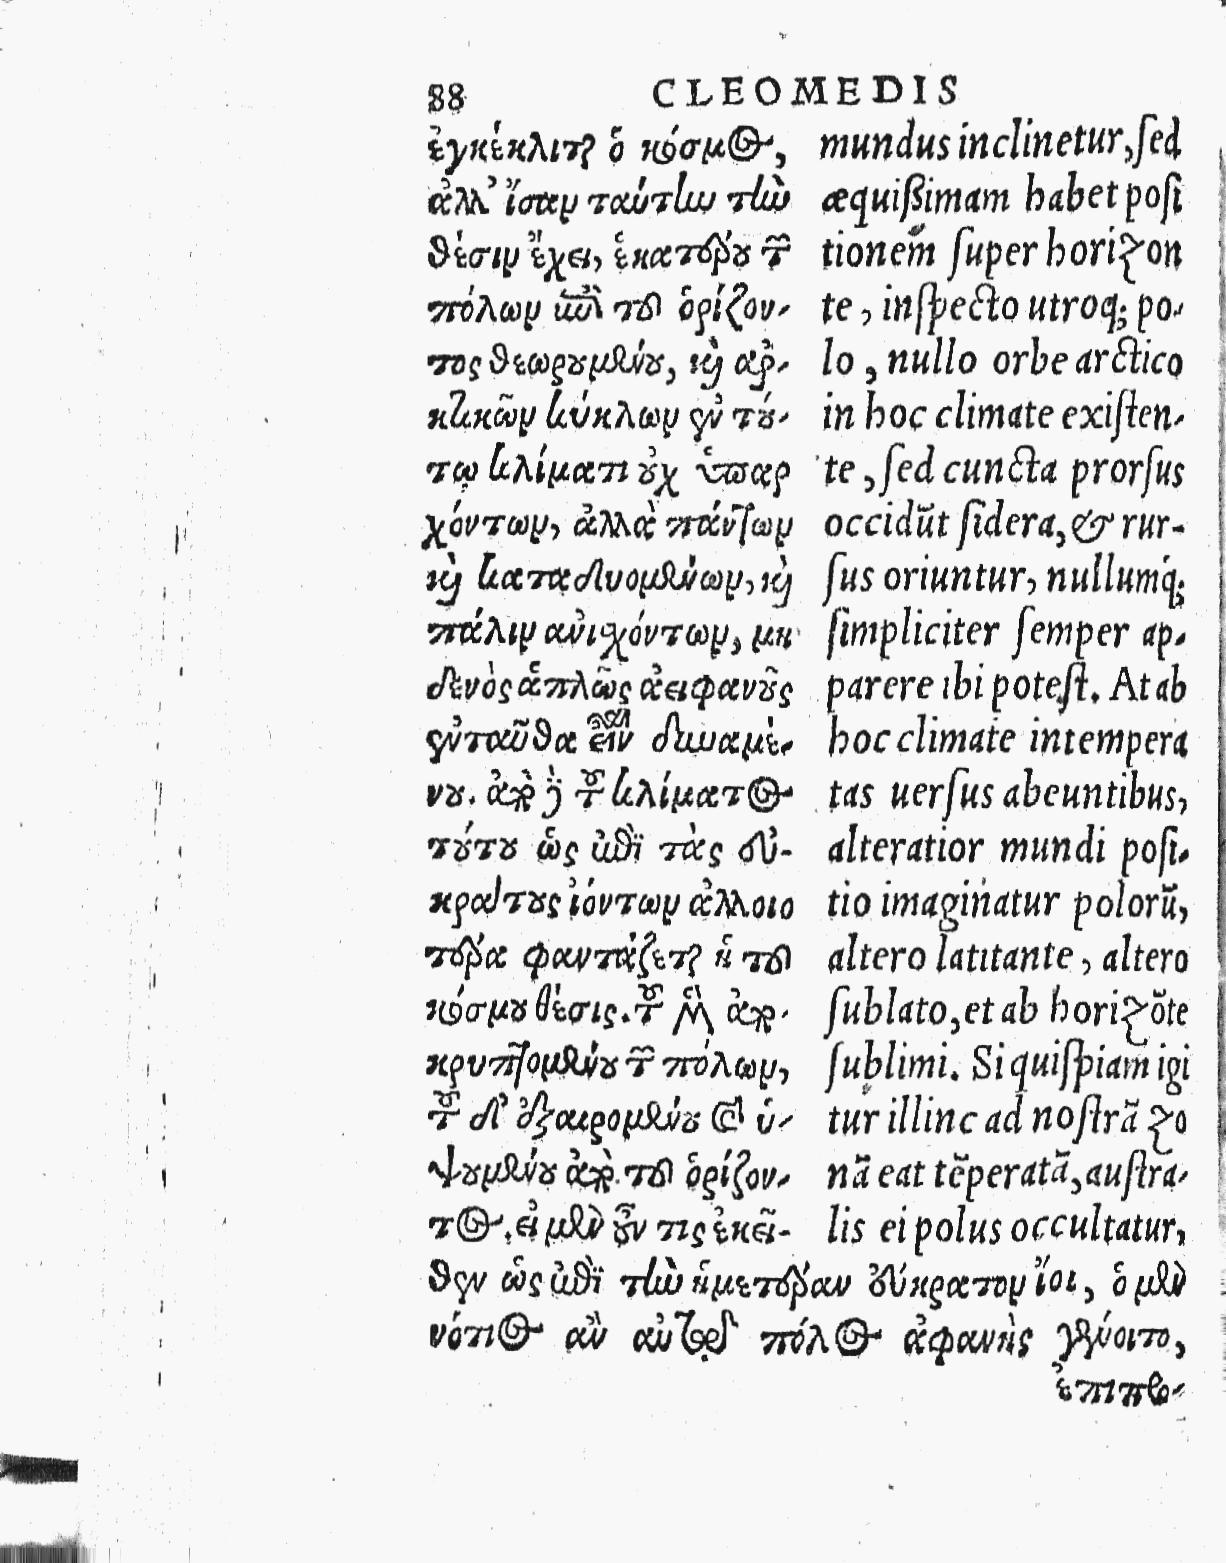 88 CLEOMEDIS
ἐγκέκλιται ὁ κόσμος,
ἀλλ' ἴσην ταύτην τὴν
θέσιν ἔχει, ἑκατέρου τῶν
πόλων ἐπὶ τοῦ ὁρίζον-
τος θεωρουμένου, καὶ ἀρ-
κτικῶν κύκλων ἐν τού-
τῳ κλίματι οὐχ ὑπαρ
χόντων, ἀλλὰ πάντων
καὶ καταδυομένων, καὶ
πάλιν ἀνισχόντων, μη
δενὸς ἁπλῶς ἀειφανοῦς
ἐνταῦθα εἶναι δυναμέ-
νου. ἀπὸ δὲ τοῦ κλίματος
τούτου ὡς ἐπὶ τὰς εὐ-
κράτους ἰόντων ἀλλοιο
τέρα φαντάζεται ἡ τοῦ
κόσμου θέσις. τοῦ μὲν ἀπο-
κρυπτομένου τῶν πόλων,
τοῦ δ' ἐξαιρομένου καὶ ὑ-
ψουμένου ἀπὸ τοῦ ὁρίζον-
τος. εἰ μὲν οὖν τις ἐκεῖ-
mundus inclinetur, sed
æquißimam habet posi
tionem super horizon
te, inspecto utroq; po-
lo, nullo orbe arctico
in hoc climate existen-
te, sed cuncta prorsus
occidũt sidera, & rur-
sus oriuntur, nullumq́;
simpliciter semper ap-
parere ibi potest. At ab
hoc climate intempera
tas uersus abeuntibus,
alteratior mundi posi-
tio imaginatur polorũ,
altero latitante, altero
sublato, et ab horizõte
sublimi. Si quispiam igi
tur illinc ad nostrã zo
nã eat tẽperatã, austra-
lis ei polus occultatur,
θεν ὡς ἐπὶ τὴν ἡμετέραν εὔκρατον ἴοι, ὁ μὲν
νότιος ἂν αὐτῷ πόλος ἀφανὴς γένοιτο,
ἐπιπρο-